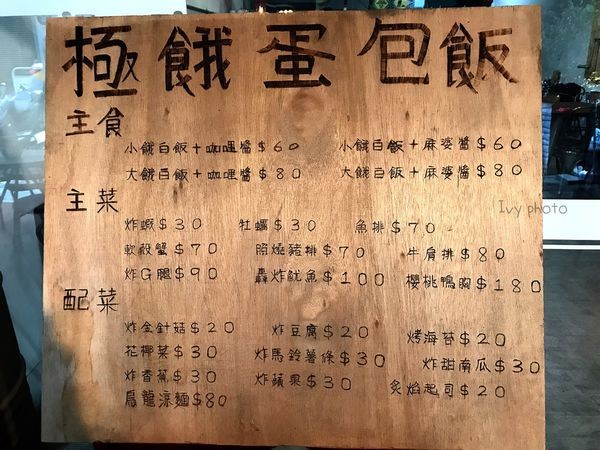 極餓蛋包飯
主食
小餓白飯+咖哩醬$60 小餓白飯+麻婆醬$60
大餓白飯+咖哩醬$80 大餓白飯+麻婆醬$80
主菜
炸蝦$30 牡蠣$30 魚排$70
軟殼蟹$70 照燒豬排$70 牛肩排$80
炸G腿$90 轟炸魷魚$100 櫻桃鴨胸$180
Ivy photo
配菜
炸金針菇$20 炸豆腐$20 烤海苔$20
花椰菜$30 炸馬鈴薯條$30 炸甜南瓜$30
炸香蕉$30 炸蘋果$30 炙焰起司$20
烏龍涼麵$80